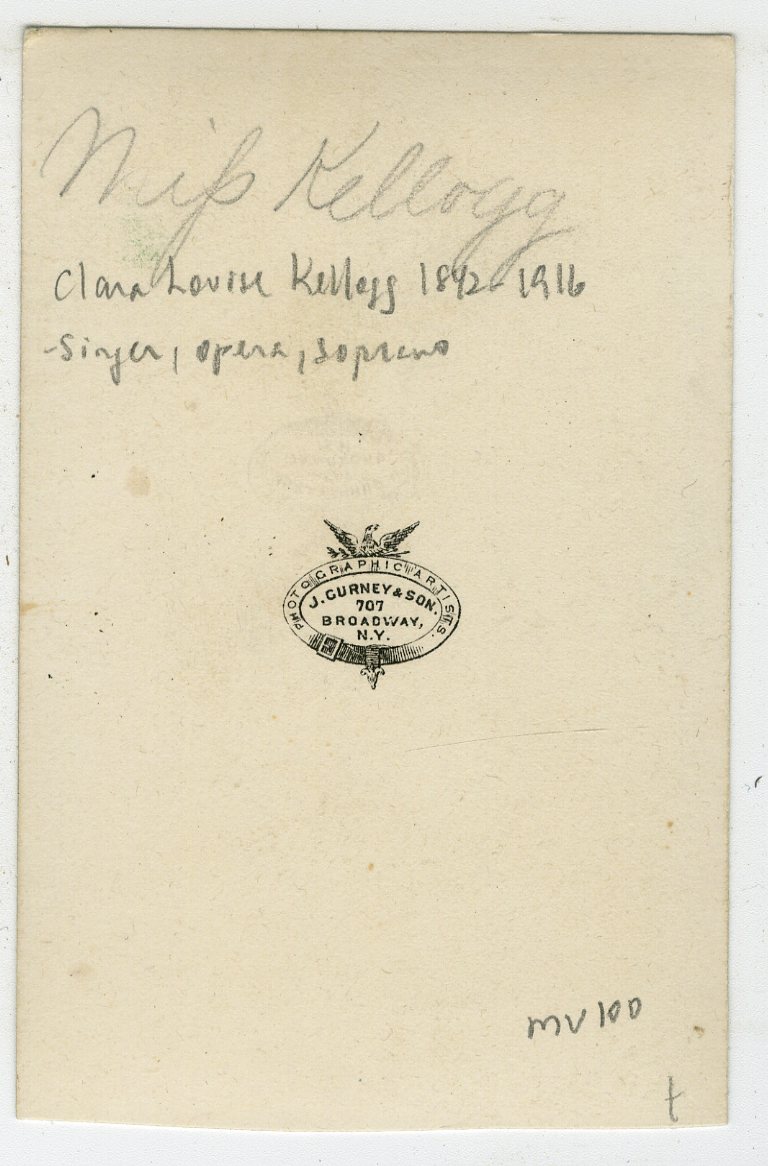 Miss Kellogg
Clara Louise Kellogg 1842-1916
-Singer, opera, soprano
PHOTOGRAPHIC ARTISTS.
J. GURNEY & SON.
707
BROADWAY,
N.Y.
MV100
t